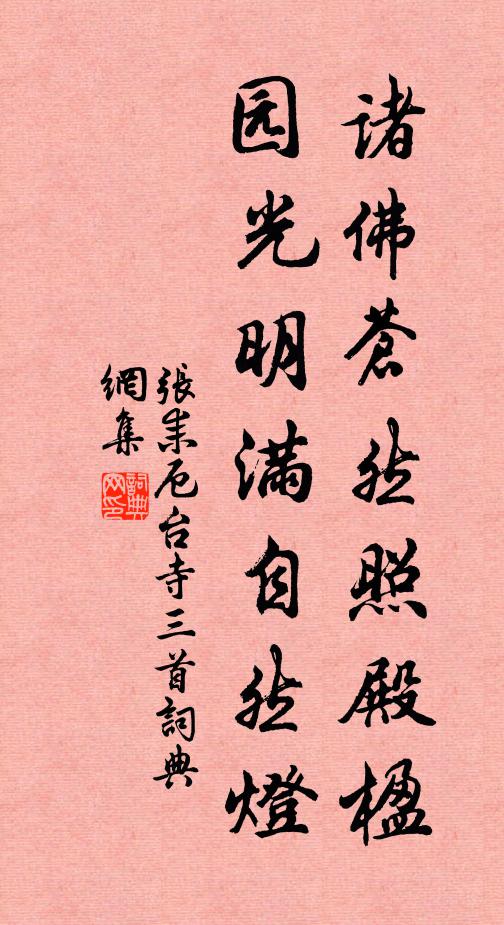 诸佛苍然照殿楹
园光明满自然燈
張耒厄台寺三首詞典
網集
詞典
网印